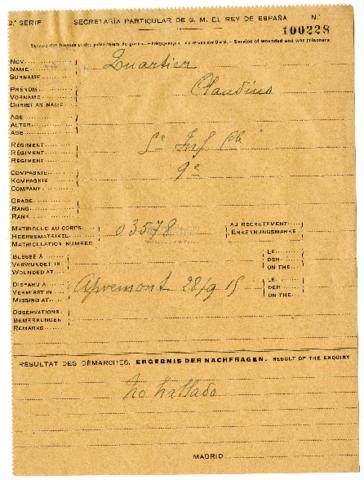 2.ª SERIE SECRETARÍA PARTICULAR DE S. M. EL REY DE ESPAÑA N.º
100228
Service of wounded and war prisoners
NOM
NAME
SURNAME
Quartier
PRÉNOM
VORNAME
CHRISTIAN NAME
Claudius
AGE
ALTER
AGE
RÉGIMENT
REGIMENT
REGIMENT
Inf
COMPAGNIE
KOMPAGNIE
COMPANY
9e
GRADE
RANG
RANK
MATRICULE AU CORPS
HEERESMATRIKEL
MATRICULATION NUMBER
03578
AU RECRUTEMENT
ERKENNUNGSMARKE
BLESSÉ À
VERWUNDET IN
WOUNDED AT
LE
DER
ON THE
DISPARU À
VERMISST IN
MISSING AT
Apremont 28/9 15
LE
DER
ON THE
OBSERVATIONS
BEMERKUNGEN
REMARKS
RÉSULTAT DES DÉMARCHES. ERGEBNIS DER NACHFRAGEN. RESULT OF THE ENQUIRY
no hallado
MADRID